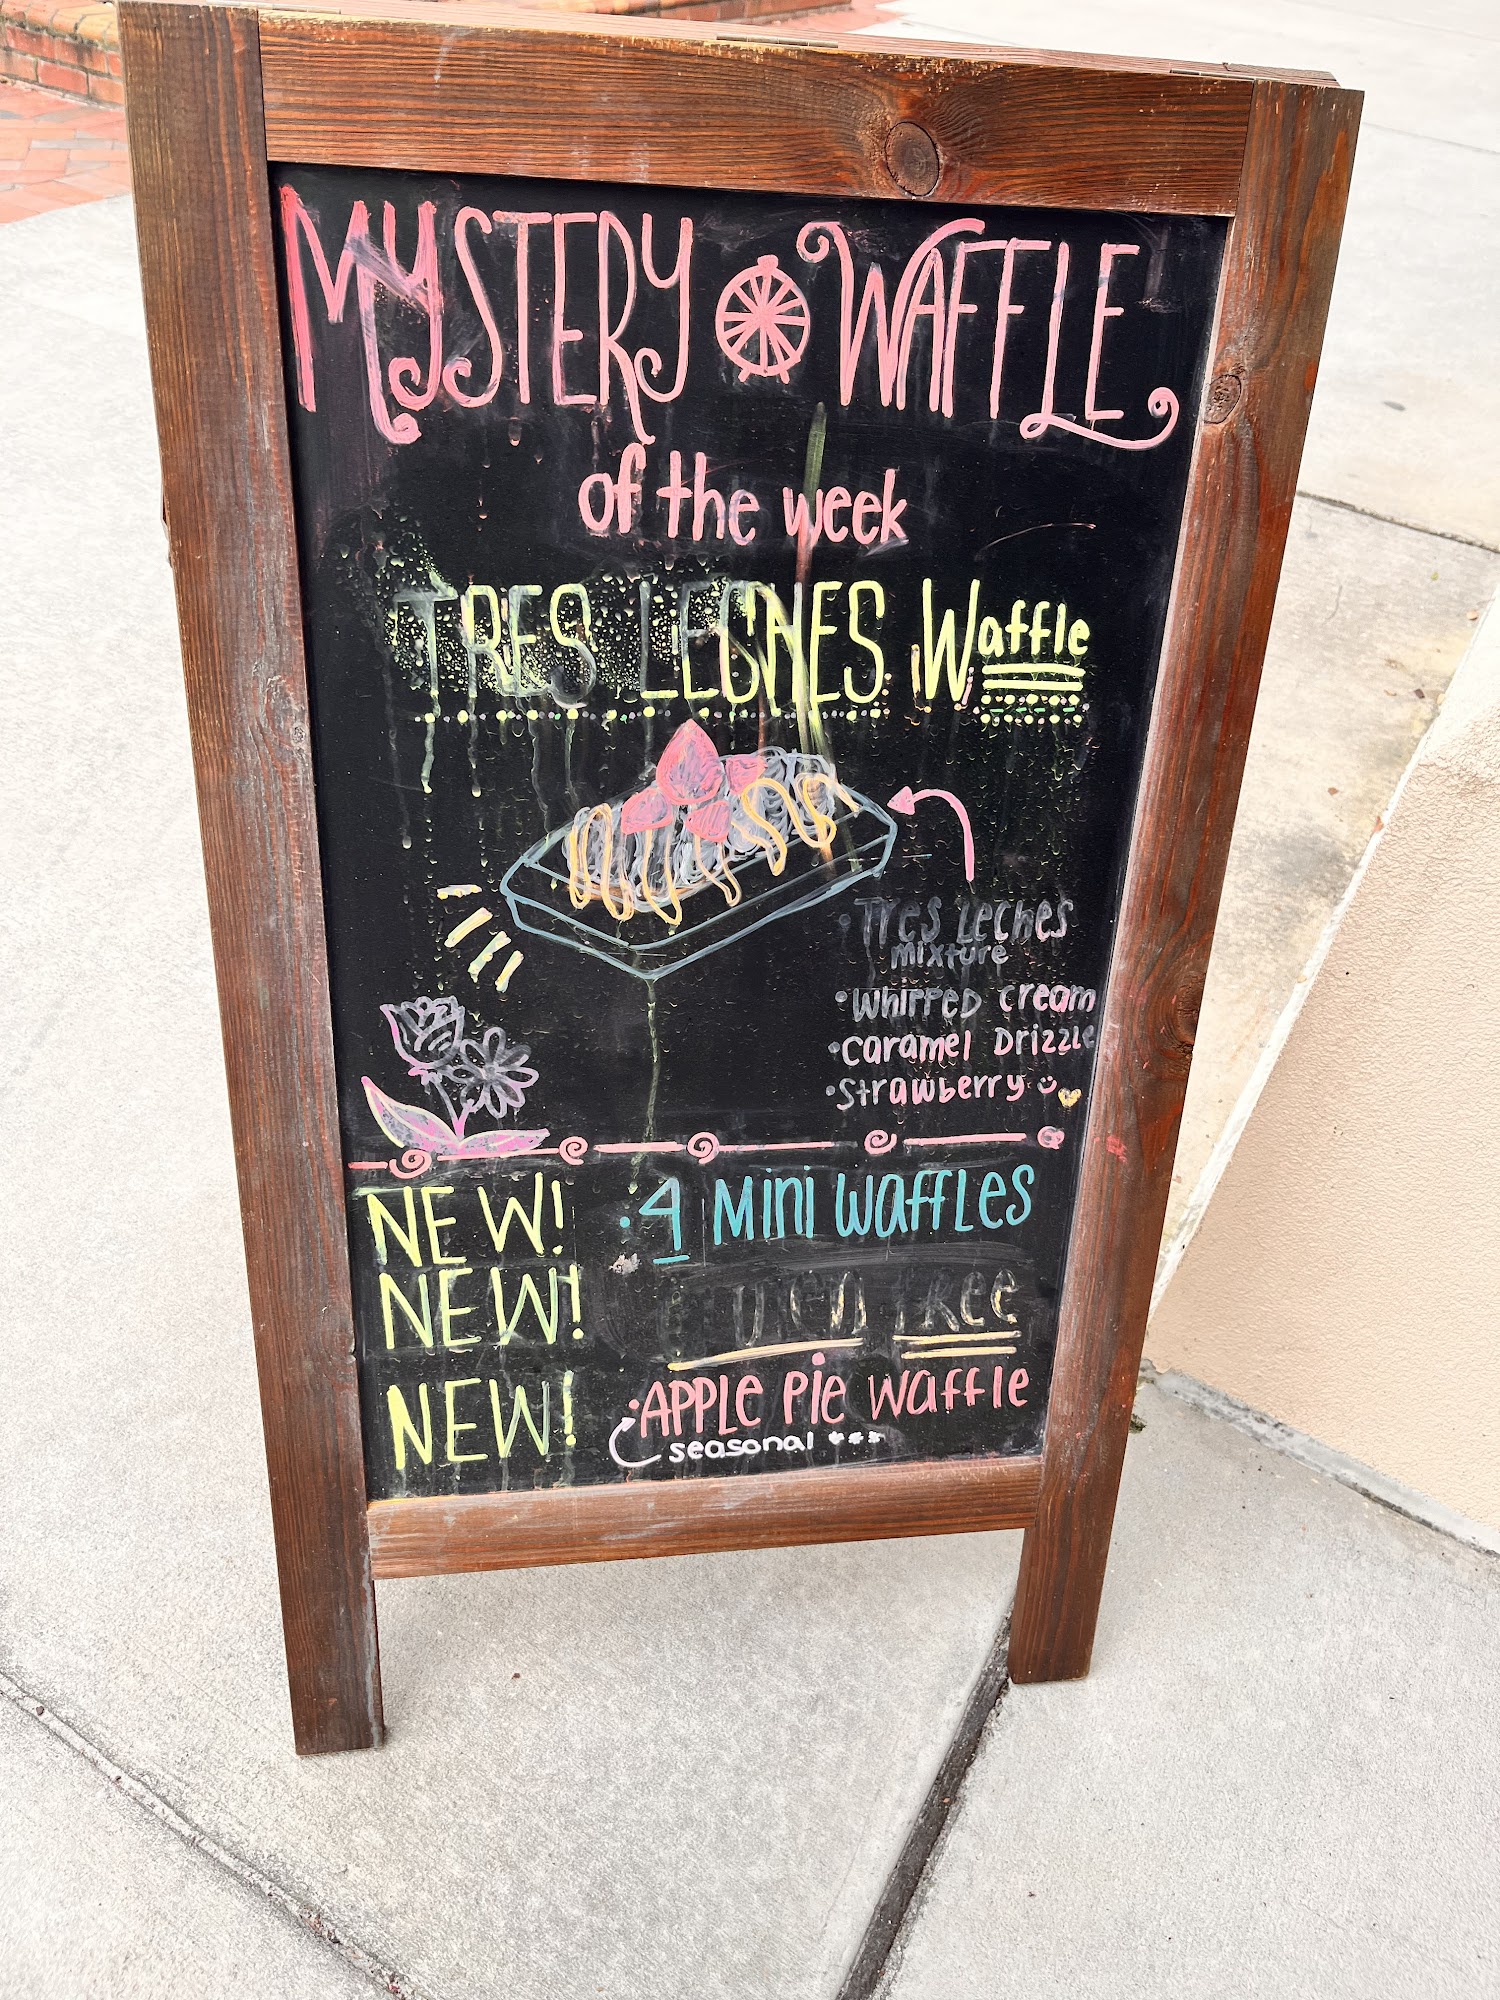 MYSTERY WAFFLE
of the week
TRES LECHES Waffle
• Tres Leches
mixture
• Whipped cream
• caramel Drizzle
• Strawberry
NEW! • 4 Mini Waffles
NEW! Gluten Free
NEW! • Apple Pie Waffle
seasonal